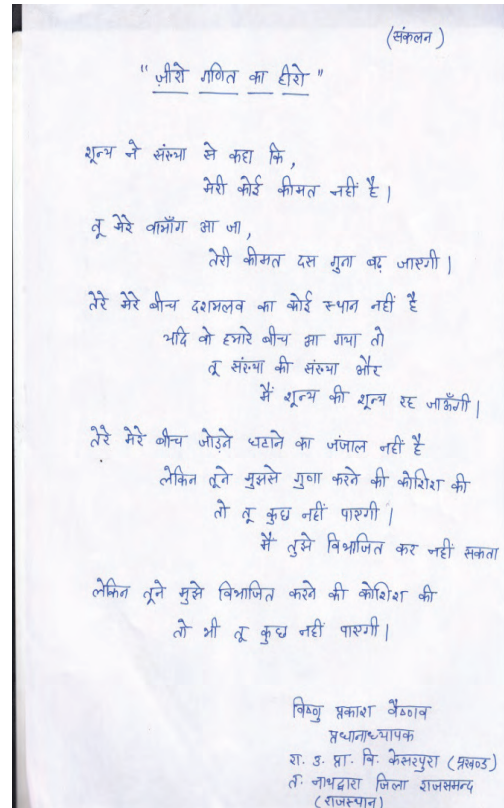 (संकलन)
"ज़ीरो गणित का हीरो"
शून्य ने संख्या से कहा कि,
मेरी कोई कीमत नहीं है।
तू मेरे वामाँग आ जा,
तेरी कीमत दस गुना बढ़ जाएगी।
तेरे मेरे बीच दशमलव का कोई स्थान नहीं है
यदि वो हमारे बीच आ गया तो
तू संख्या की संख्या और
मैं शून्य की शून्य रह जाऊँगी।
तेरे मेरे बीच जोड़ने घटाने का जंजाल नहीं है
लेकिन तूने मुझसे गुणा करने की कोशिश की
तो तू कुछ नहीं पाएगी।
मैं तुझे विभाजित कर नहीं सकता
लेकिन तूने मुझे विभाजित करने की कोशिश की
तो भी तू कुछ नहीं पाएगी।
विष्णु प्रकाश वैष्णव
प्रधानाध्यापक
रा. उ. प्रा. वि. केसरपुरा (प्रखण्ड)
त. नाथद्वारा जिला राजसमन्द
(राजस्थान)